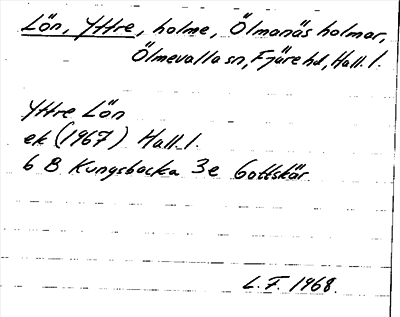 Lön, Yttre, holme, Ölmanäs holmar,
Ölmevalla sn, Fjäre hd, Hall. l.
Yttre Lön
ek (1967) Hall. l.
6 B Kungsbacka 3e Gottskär.
L. F. 1968.